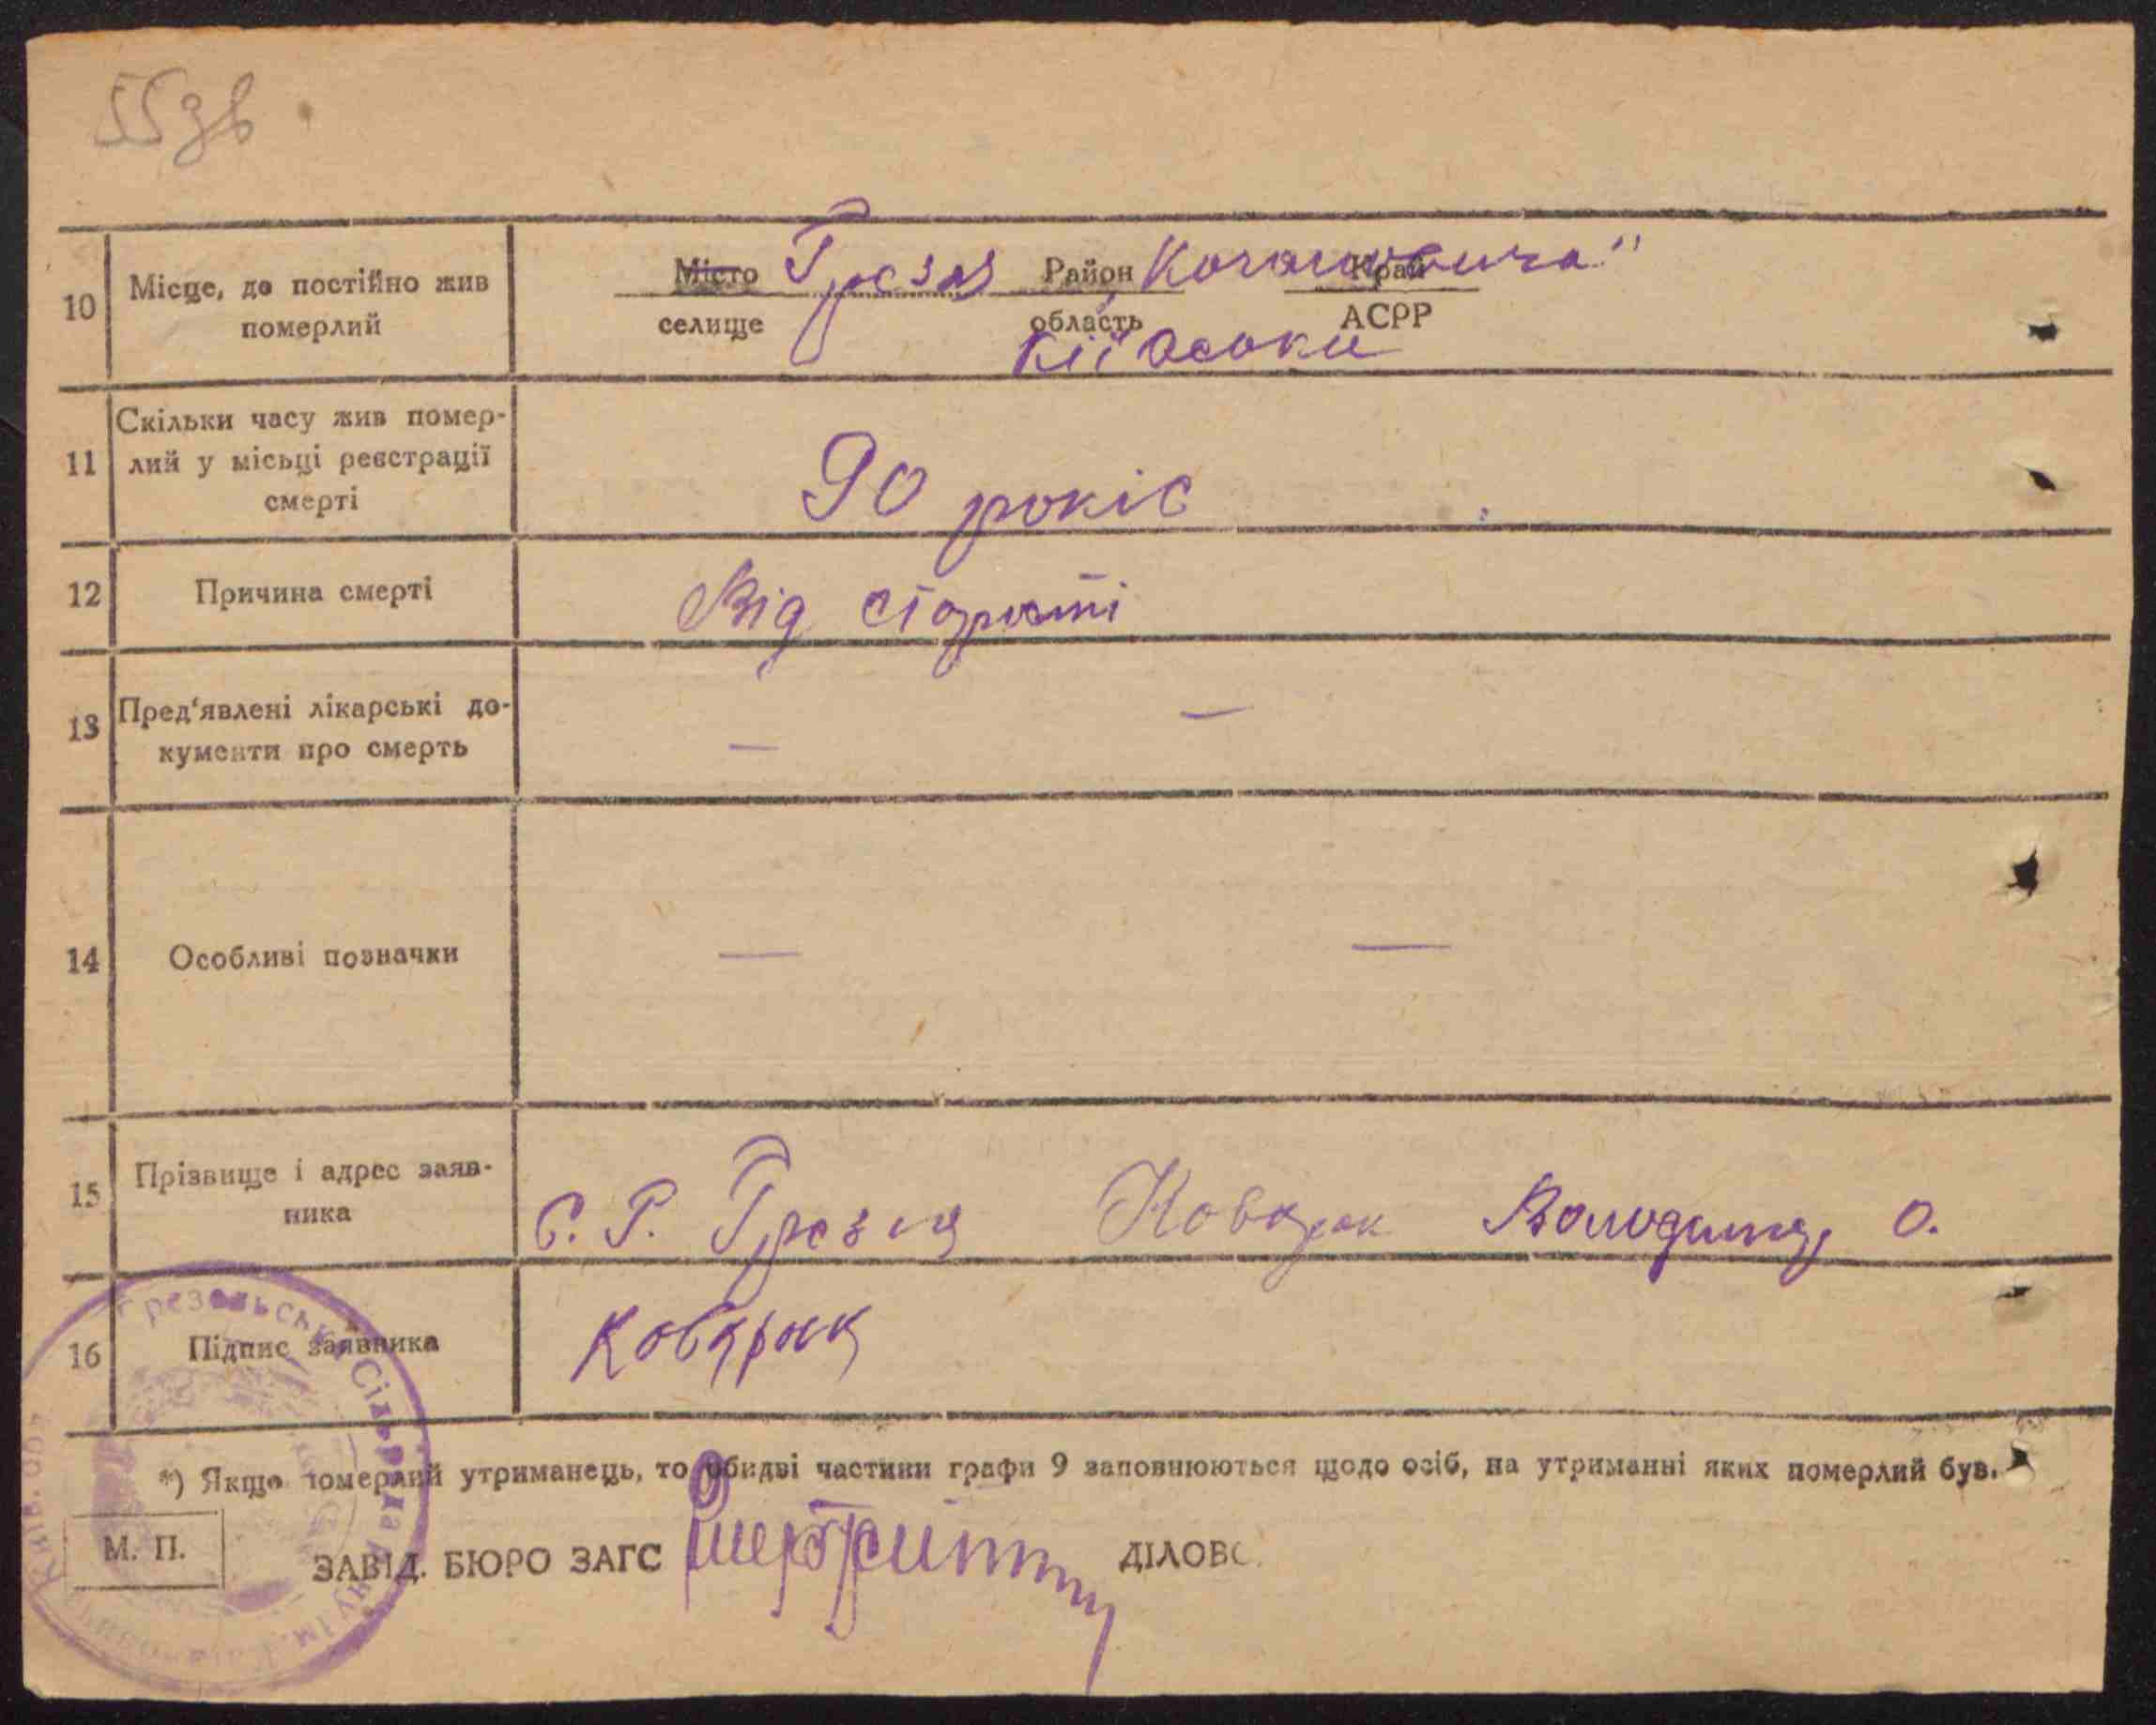 55зв
10
Місце, де постійно жив
померлий
Місто Грезля Район „Кагановича" Край
селище область АСРР
11
Скільки часу жив помер-
лий у місьці реєстрації
смерті
90 років
12
Причина смерті
Від старості
13
Пред'явлені лікарські до-
кументи про смерть
— —
14
Особливі позначки
— —
15
Прізвище і адрес заяв-
ника
С. Р. Грезля Кова Володимир О.
16
Підпис заявника
*) Якщо померлий утриманець, то обидві частини графи 9 заповнюються щодо осіб, на утриманні яких померлий був.
М. П.
ЗАВІД. БЮРО ЗАГС ДІЛОВ
Грезельська Сільрада